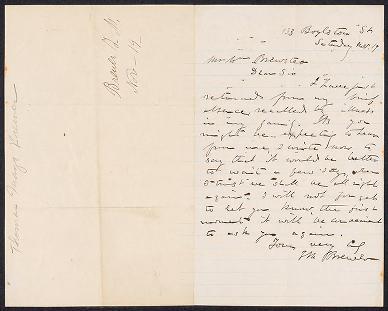 Brewer T. M.
Nov - 17
133 Boylston St
Saturday Nov. 17
Mr Wm Brewster
Dear Sir
I have just
returned from my long
absence, recalled by illness
in my family. As you
might be expecting to hear
from me, I write now to
say that it would be better
to wait a few days, when
I trust we shall be all right
again. I will not forget
to let you know, the first
moment it will be convenient
to ask you again.
Yours very
T M Brewer
Thomas Mayo Brewer